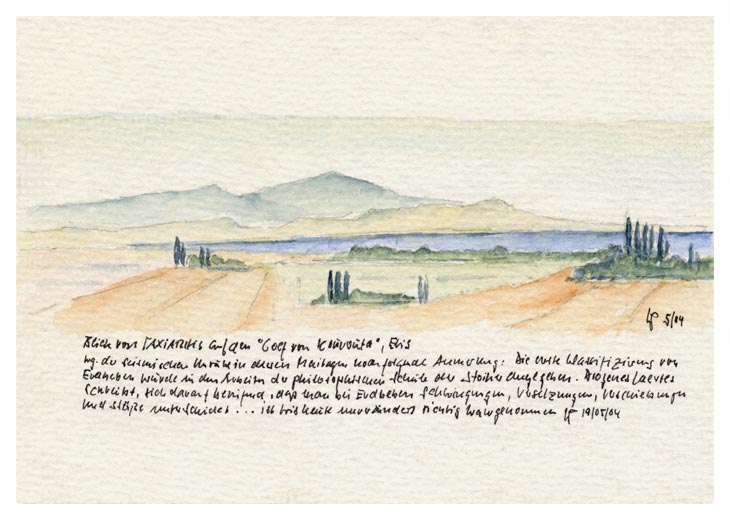 5/04
Blick von TAXIARHIS auf den "Golf von Kouvouta", Elis
wg. der seismischen Unruhe in diesen Maitagen noch folgende Anmerkung: Die erste Klassifizierung von
Erdbeben würde in den Kreisen der philosophischen Schule der Stoiker angegeben. Diogenes Laertes
Schreibt, sich darauf berufend, dass man bei Erdbeben Schwingungen, Versetzungen, Verschiebungen
und Stöße unterscheidet ... ist bis heute unverändert richtig wahrgenommen 19/05/04